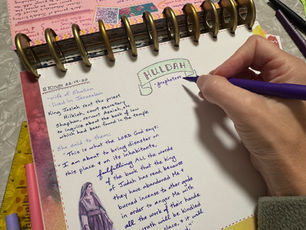 2 KINGS 22:14-20
HULDAH
- prophetess
- wife of Shallum
- lived in Jerusalem
King Josiah sent the priest
Hilkiah, court secretary
Shaphan, servant
to inquire about the book of law
which had been found in the temple.
She said to them:
"This is what the LORD says:
I am about to bring disaster on
this place & on its inhabitants,
fulfilling ALL the words
of the book that the king
of Judah has read, because
they have abandoned Me &
burned incense to other gods
in order to anger Me with
all the work of their hands.
will be kindled
place, & it will